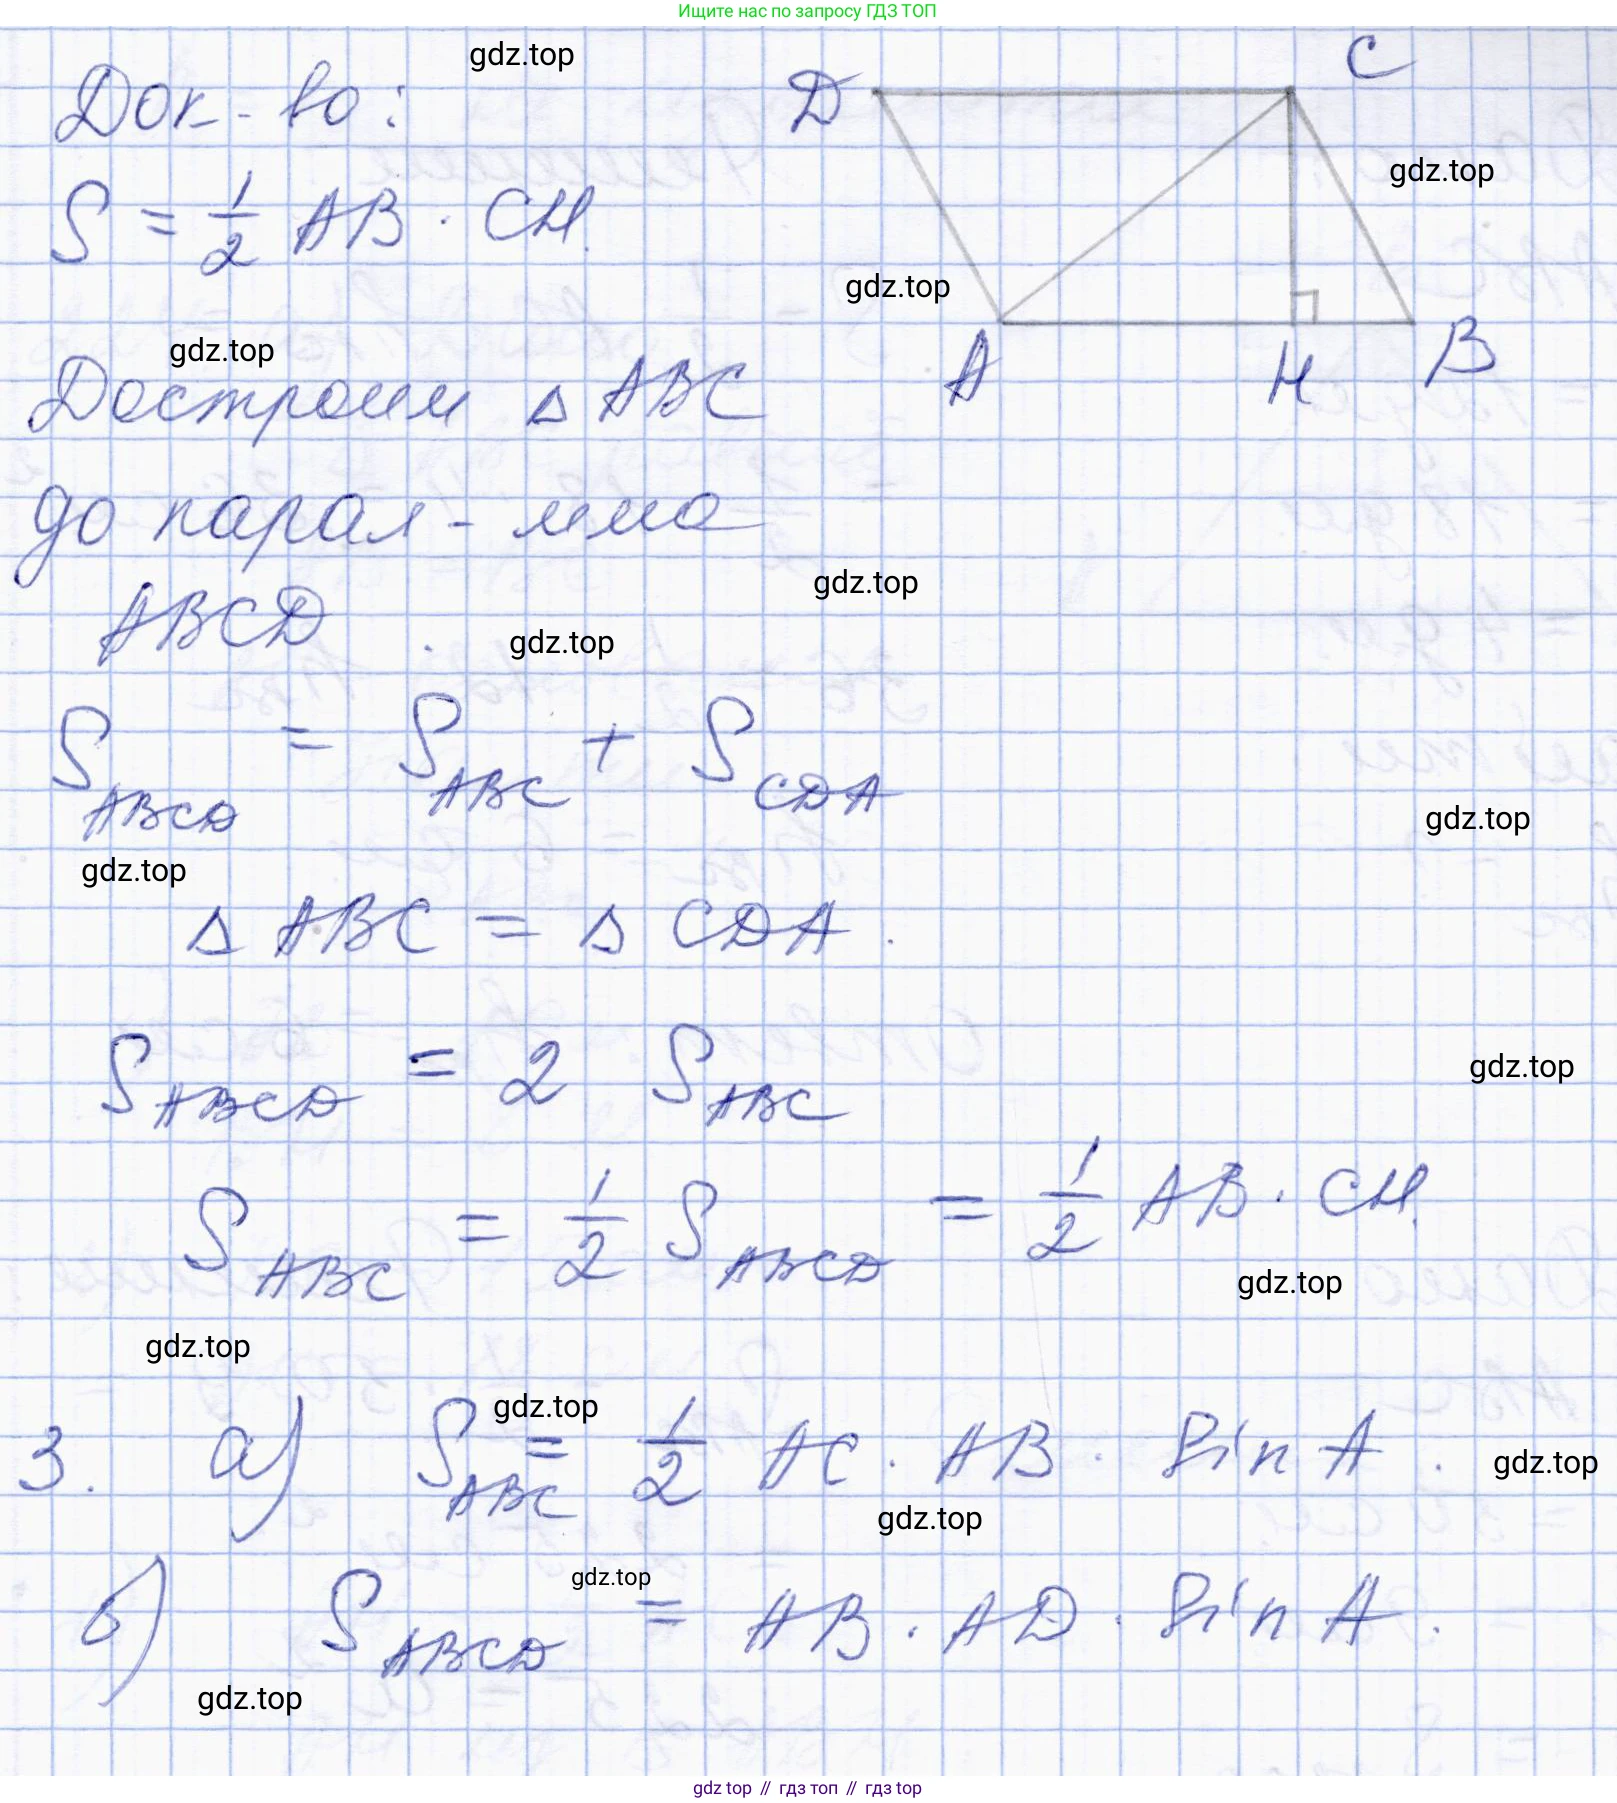 Ищите нас по запросу ГДЗ ТОП
gdz.top
Док-во:
D
C
gdz.top
S = 1/2 AB · CH.
gdz.top
gdz.top
A
H
B
Достроим Δ ABC
до парал-мма
gdz.top
ABCD
gdz.top
S ABCD = S ABC + S CDA
gdz.top
gdz.top
Δ ABC = Δ CDA.
S ABCD = 2 S ABC
gdz.top
S ABC = 1/2 S ABCD = 1/2 AB · CH.
gdz.top
gdz.top
gdz.top
3. а) S ABC = 1/2 AC · AB · sin A.
gdz.top
gdz.top
gdz.top
б) S ABCD = AB · AD · sin A.
gdz.top
gdz top // гдз топ // гдз top